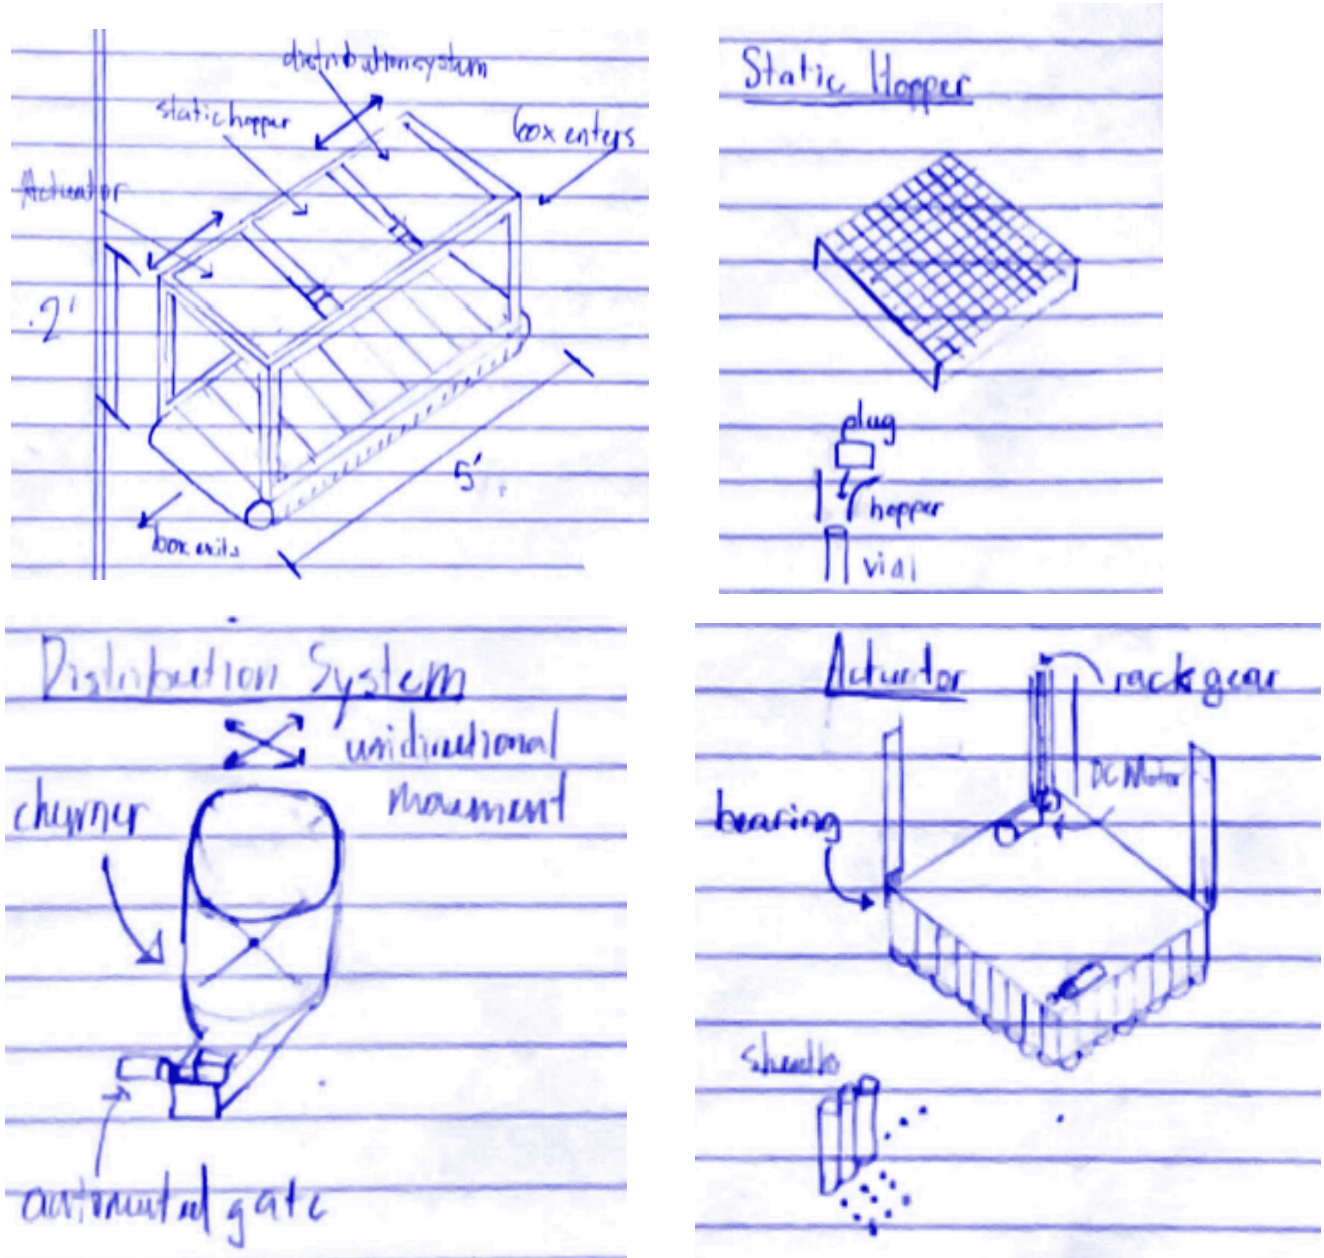 distribution system
static hopper
box enters
Actuator
2'
5'
box exits
Static Hopper
plug
hopper
vial
Distribution System
unidirectional
movement
churner
automated gate
Actuator
rack gear
DC Motor
bearing